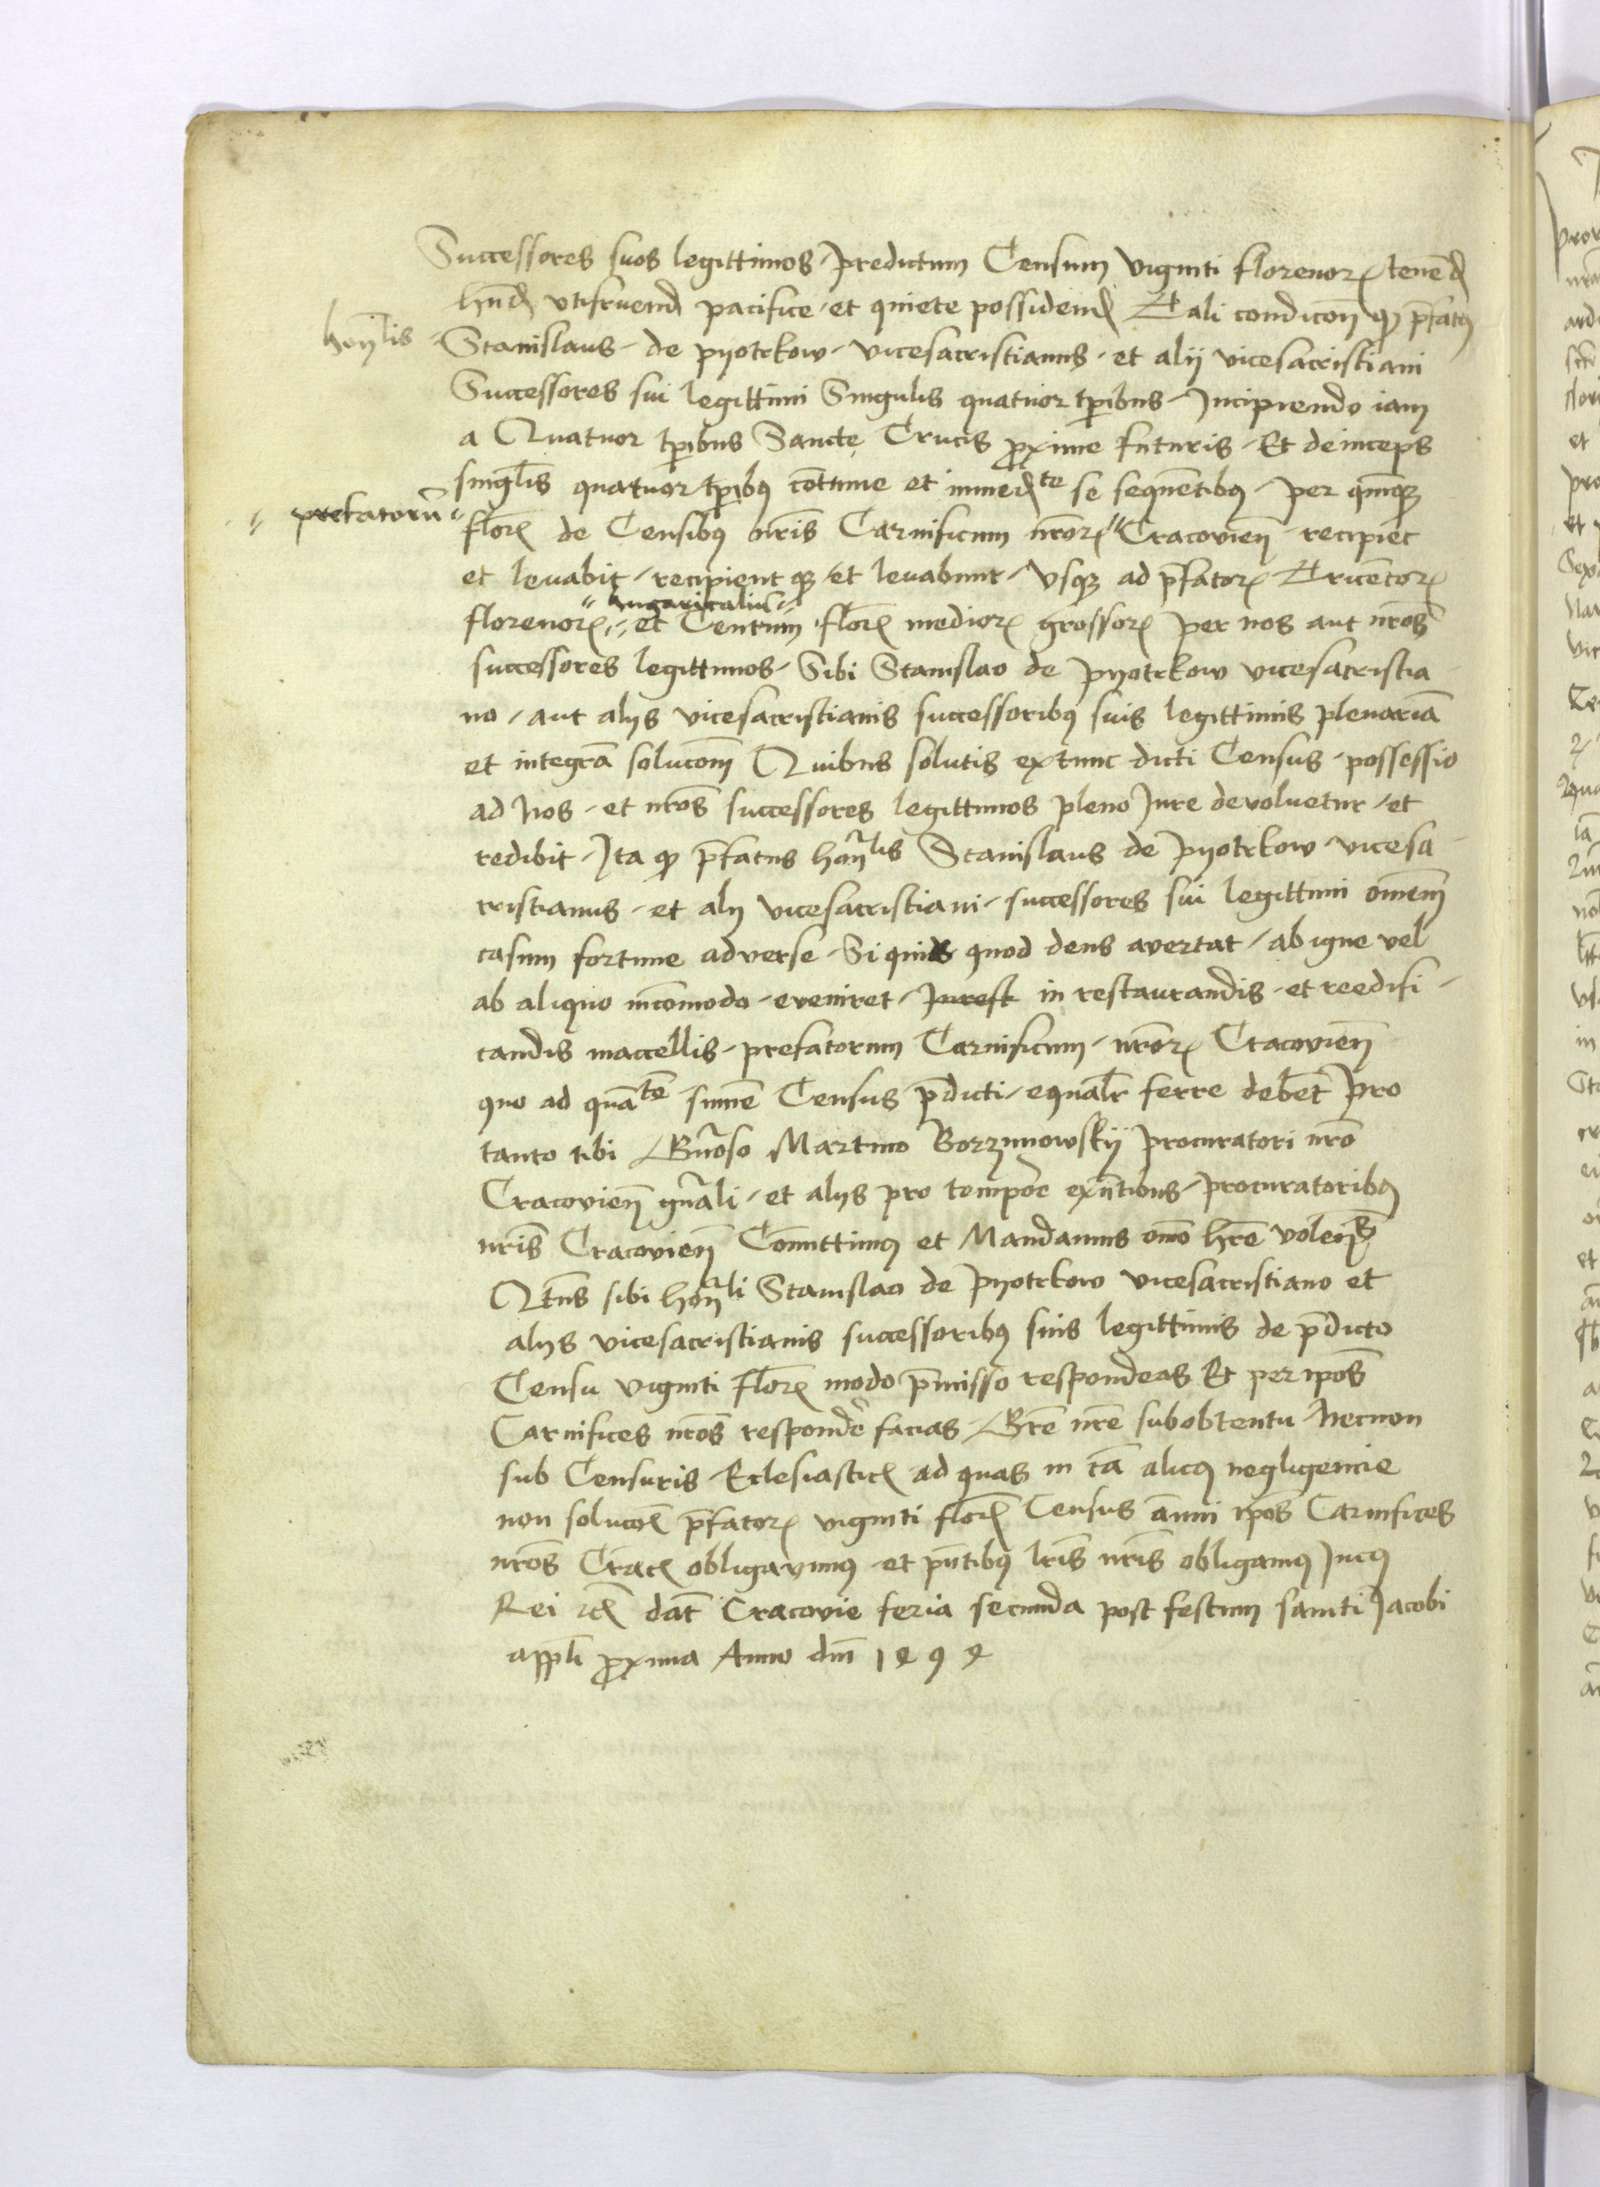 Successores suos legittimos predictum Censum viginti florenoꝝ tenend
hnd utifruend pacifice et quiete possidend Tali condicon̄ qꝫ p̄fatꝯ
hon̄lis
Stanislaus de pyotrkow vicesacristianus et alij vicesacristiani
Successores sui legittimi Singulis quatuor tꝑibus Incipiendo iam
a Quatuor tꝑibus Sancte Crucis ꝓxime futuris Et deinceps
singl̄is quatuor tꝑibꝯ cōtinue et immedte se sequētibꝯ per quinqꝫ
prefatorū
florꝫ de Censibꝯ nr̄is Carnificum nr̄oꝝ Cracovien̄ recipiet
et levabit recipient qꝫ et levabunt Usqꝫ ad p̄fatoꝝ Tricētoꝝ
Angaritaliū
florenoꝝ et Centum floꝝ medioꝝ grossoꝝ per nos aut nr̄os
successores legittimos Sibi Stanislao de pyotrkow vicesacristia
no aut alijs vicesacristianis successoribꝯ suis legittimis plenariā
et integrā solucōm Quibus solutis extunc dicti Census possessio
ad Nos et nr̄os successores legittimos pleno Jure devoluetur et
redibit Ita qꝫ p̄fatus hon̄lis Stanislaus de pyotrkow vicesa
cristianus et alij vicesacristiani successores sui legittimi omēm
casum fortune adverse Si quis quod deus avertat ab igne vel
ab aliquo incōmodo eveniret in restaurandis et reedifi
candis maccellis prefatorum Carnificum nr̄oꝝ Cracovien̄
quo ad quāte sum̄e Census p̄dicti equal̄r ferre debet Pro
tanto tibi Gn̄oso Martino Borzimowskij procuratori nr̄o
Cracovien̄ gn̄ali et alijs pro tempor̄e exn̄tibus procuratoribꝯ
nr̄is Cracovien̄ Cōmittimꝯ et Mandamus om̄o hr̄e volen̄s
Qtn̄s sibi hon̄li Stanislao de pyotrkow vicesacristiano et
alijs vicesacristianis successoribꝯ suis legittimis de p̄dicto
Censu viginti floꝝ modo p̄misso respondeas Et per ip̄os
Carnifices nr̄os respondēr facias Gr̄e nr̄e sub obtentu Necnon
sub Censuris Ecclesiasticꝭ ad quas in cā alicꝯ negligencie
non solucōꝭ p̄fatoꝝ viginti floꝝ Census annui ip̄os Carnifices
nr̄os Cracꝭ obligavimꝯ et pn̄tibꝯ lr̄is nr̄is obligamꝯ Incꝯ
Rei tꝭ dat̄ Cracovie feria secunda post festum sancti Jacobi
appl̄i ꝓxima Anno dn̄i 1494